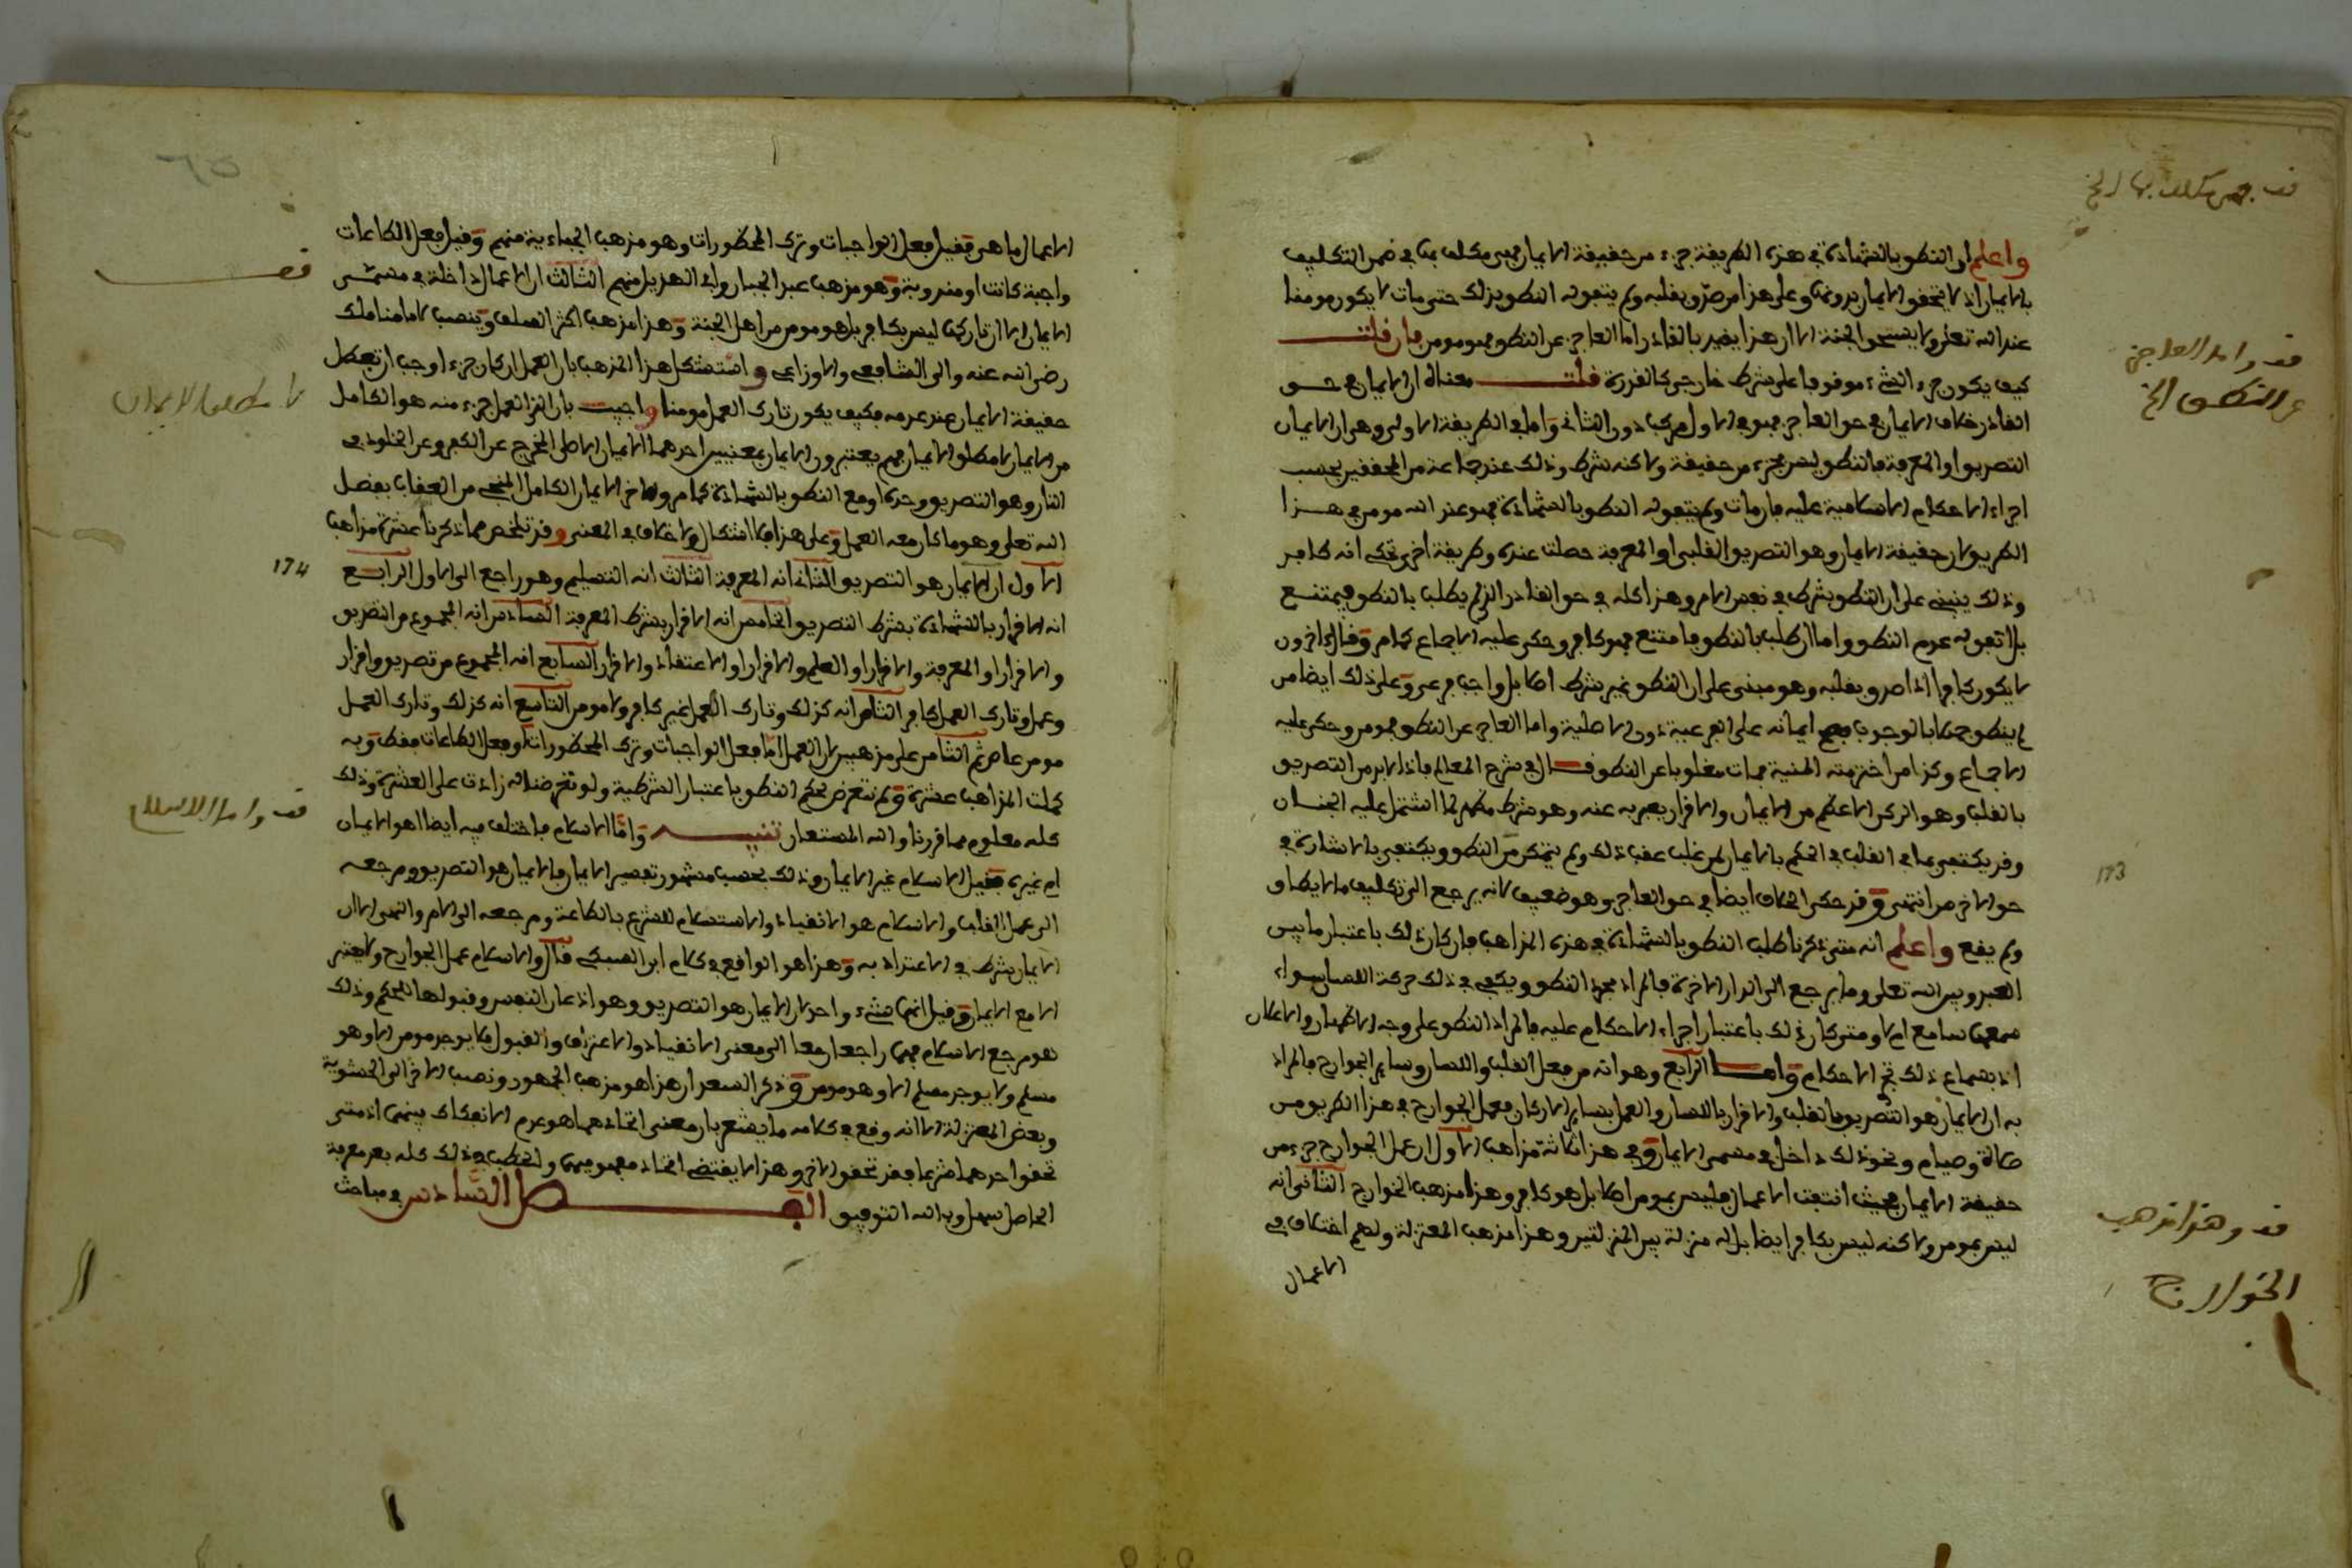 واعلم ان النطق بالشهادة في هذه الطريقة جزء من حقيقة الايمان فهي مكلف بها في ضمن التكليف
بالايمان اذ لا يتحقق الايمان بدونها وعلى هذا من صدق بقلبه ولم يتفق له النطق بذلك حتى مات لا يكون مومنا
عند الله تعلى ولا يستحق الجنة الا ان هذا يقيد بالقادر اما العاجز عن النطق فهو مومن فان قلت
كيف يكون جزء الشيء موقوفا على شرط خارجي كالقدرة قلت معناه ان الايمان في حق
القادر خلاف الايمان في حق العاجز فهو في الاول مركب دون الثاني واما في الطريقة الاولى وهي ان الايمان
التصديق او المعرفة فالنطق ليس بجزء من حقيقته ولاكنه شرط وذلك عند جماعة من المحققين بحسب
اجراء الاحكام الاسلامية عليه فان مات ولم يتفق له النطق بالشهادة فهو عند الله مومن في هذا
الطريق لان حقيقة الايمان وهو التصديق القلبي او المعرفة حصلت عنده وطريقة اخرى تحكي انه كافر
وذلك ينبني على ان النطق شرط في نفس الامر وهذا كله في حق القادر الذي لم يطلب بالنطق فيمتنع
بل اتفق له عدم النطق واما ان طلب بالنطق فامتنع فهو كافر وحكي عليه الاجماع كما مر وقال اخرون
لا يكون كافرا اذا صدق بقلبه وهو مبني على ان النطق غير شرط اصلا بل واجب فرعي وعلى ذلك ايضا من
لم ينطق جهلا بالوجوب فصح ايمانه على الفرعية دون الاصلية واما العاجز عن النطق فمومن وحكي عليه
الاجماع وكذا من اخترمته المنية فمات مغلوبا عن النطق قال في شرح المعالم فاذا لا بد من التصديق
بالقلب وهو الركن الاعظم من الايمان والاقرار يعبر به عنه وهو شرط مظهر لما اشتمل عليه الجنان
وقد يكتفي بما في القلب في الحكم بالايمان لمن غلب عقب ذلك ولم يتمكن من النطق ويكتفي بالاشارة في
حق الاخرس انتهى وقد حكي الخلاف ايضا في حق العاجز وهو ضعيف لانه يرجع الى تكليف ما لا يطاق
ولم يقع واعلم انه متى ذكرنا طلب النطق بالشهادة في هذه المذاهب فان كان ذلك باعتبار ما بين
العبد وبين الله تعلى وما يرجع الى الدار الاخرة فالمراد مجرد النطق ويكفي في ذلك حركة اللسان سواء
سمعها سامع ام لا ومتى كان ذلك باعتبار اجراء الاحكام عليه فالمراد النطق على وجه الاظهار والاعلان
اذ بسماع ذلك تجري الاحكام واما الرابع وهو انه من فعل القلب واللسان وساير الجوارح فالمراد
به ان الايمان هو التصديق بالقلب والاقرار باللسان والعمل بساير الاركان فعمل الجوارح في هذا الطريق من
صلاة وصيام ونحو ذلك داخل في مسمى الايمان وفي هذا ثلاثة مذاهب الاول ان عمل الجوارح جزء من
حقيقة الايمان بحيث اذا انتفت الاعمال فليس بمومن اصلا بل هو كافر وهذا مذهب الخوارج الثاني انه
ليس بمومن ولاكنه ليس بكافر ايضا بل له منزلة بين المنزلتين وهذا مذهب المعتزلة ولهم اختلاف في
الاعمال
قف واما العاجز
عن النطق الخ
173
قف وهذا مذهب
الخوارج
الاعمال ما هي فقيل فعل الواجبات وترك المحظورات وهو مذهب الجباءية منهم وقيل فعل الطاعات
واجبة كانت او مندوبة وهو مذهب عبد الجبار وابي الهذيل منهم الثالث ان الاعمال داخلة في مسمى
الايمان الا ان تاركها ليس بكافر بل هو مومن من اهل الجنة وهذا مذهب اكثر السلف وينسب لامامنا ملك
رضي الله عنه والى الشافعي والاوزاعي واستشكل هذا المذهب بان العمل ان كان جزءا وجب ان تبطل
حقيقة الايمان عند عدمه فكيف يكون تارك العمل مومنا واجيب بان الذي العمل جزء منه هو الكامل
من الايمان لا مطلق الايمان فهم يعتبرون الايمان بمعنيين احدهما الايمان الاصلي المخرج عن الكفر وعن الخلود في
النار وهو التصديق وحده او مع النطق بالشهادة كما مر والاخر الايمان الكامل المنجي من العقاب بفضل
الله تعلى وهو ما كان معه العمل وعلى هذا فلا اشكال ولا خلاف في المعنى وقد تلخص مما ذكرنا عشرة مذاهب
الاول ان الايمان هو التصديق الثاني انه المعرفة الثالث انه التسليم وهو راجع الى الاول الرابع
انه الاقرار بالشهادة بشرط التصديق الخامس انه الاقرار بشرط المعرفة السادس انه المجموع من التصديق
والاقرار او المعرفة والاقرار او العلم والاقرار او الاعتقاد والاقرار السابع انه المجموع من تصديق واقرار
وعمل وتارك العمل كافر الثامن انه كذلك وتارك العمل غير كافر ولا مومن التاسع انه كذلك وتارك العمل
مومن عاص ثم الثامن على مذهبين لان العمل اما فعل الواجبات وترك المحظورات او فعل الطاعات فقط وبه
كملت المذاهب عشرة ولم نتعرض لحكم النطق باعتبار الشرطية ولو تعرضنا له زادت على العشرة وذلك
كله معلوم مما قررنا والله المستعان تنبيه واما الاسلام فاختلف فيه ايضا اهو الايمان
ام غيره فقيل الاسلام غير الايمان وذلك بحسب مشهور تفسير الايمان فالايمان هو التصديق ومرجعه
الى عمل القلب والاسلام هو الانقياد والاستسلام للشرع بالطاعة ومرجعه الى الامر والنهي الا ان
الايمان شرط في الاعتداد به وهذا هو الواقع في كلام ابن السبكي قال والاسلام عمل الجوارح ولا تعتبر
الا مع الايمان وقيل انهما شيء واحد لان الايمان هو التصديق وهو اذعان النفس وقبولها للحكم وذلك
هو مرجع الاسلام فهما راجعان معا الى معنى الانقياد والاعتراف والقبول فلا يوجد مومن الا وهو
مسلم ولا يوجد مسلم الا وهو مومن وذكر السعد ان هذا هو مذهب الجمهور ونسب الاخر الى الحشوية
وبعض المعتزلة الا انه وقع في كلامه ما يشعر بان معنى اتحادهما هو عدم الانفكاك بينهما اذ متى
تحقق احدهما شرعا فقد تحقق الاخر وهذا لا يقتضي اتحاد مفهوميهما والخطب في ذلك كله بعد معرفة
الحاصل سهل وبالله التوفيق الفصل السادس في مباحث
174
لا مطلق الايمان
قف واما الاسلام